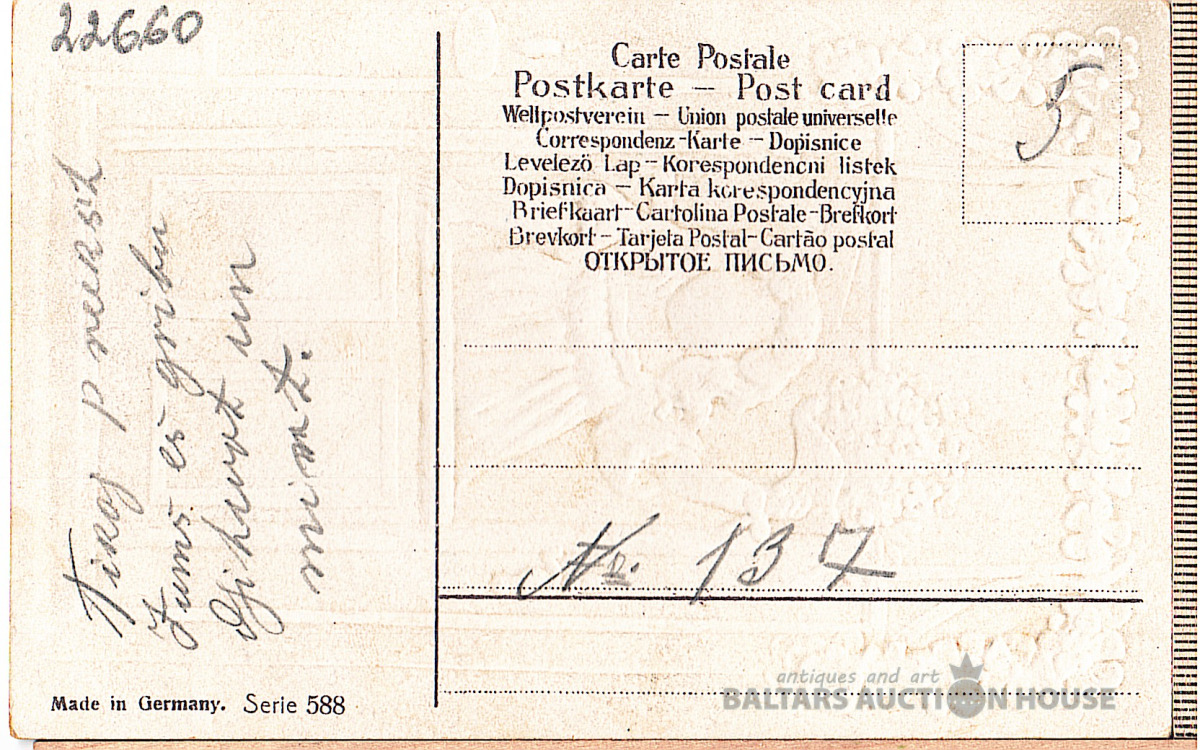 22660
Tikaj p
Jums es gribu
un
mint.
Carte Postale
Postkarte – Post card
Weltpostverein – Union postale universelle
Correspondenz-Karte – Dopisnice
Levelezö Lap – Korespondencni listek
Dopisnica – Karta korespondencyjna
Briefkaart – Cartolina Postale – Brefkort
Brevkort – Tarjeta Postal – Cartão postal
ОТКРЫТОЕ ПИСЬМО.
5
Nr. 137
Made in Germany. Serie 588
antiques and art
BALTARS AUCTION HOUSE